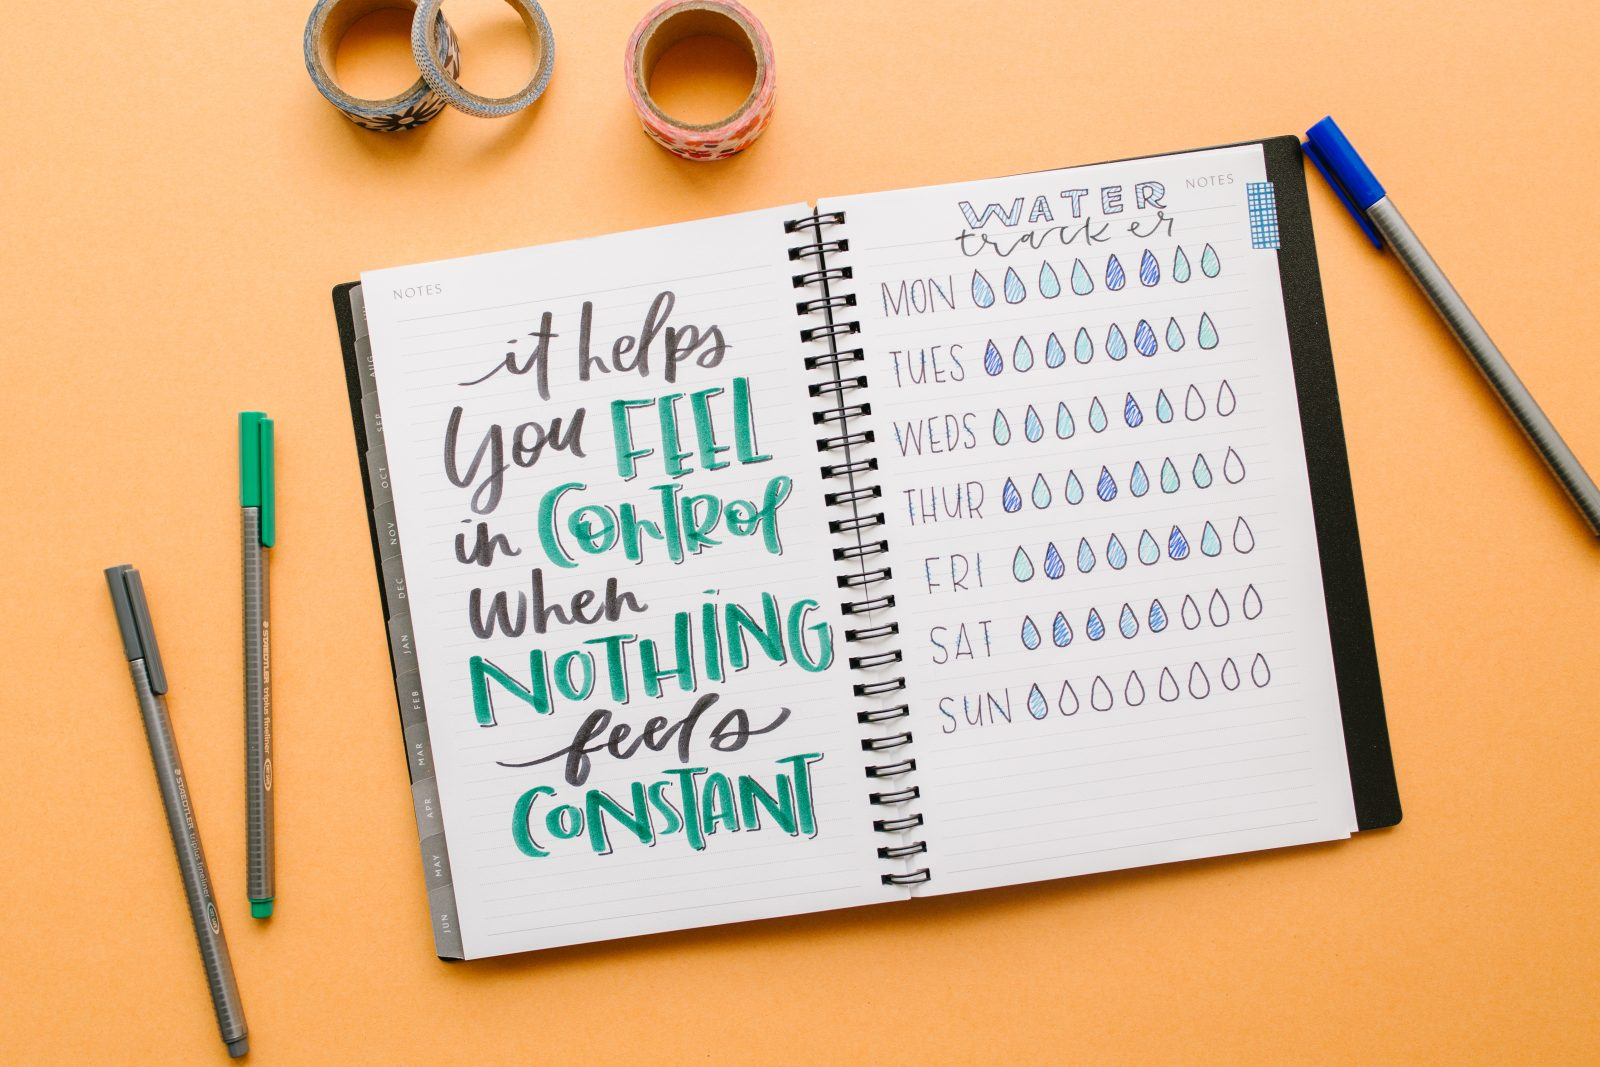 NOTES
it helps
you FEEL
in CONTROL
when
NOTHING
feels
CONSTANT
AUG
SEP
OCT
NOV
DEC
JAN
FEB
MAR
APR
MAY
JUN
NOTES
WATER
tracker
MON
TUES
WEDS
THUR
FRI
SAT
SUN
STAEDTLER triplus fineliner
STAEDTLER triplus fineliner